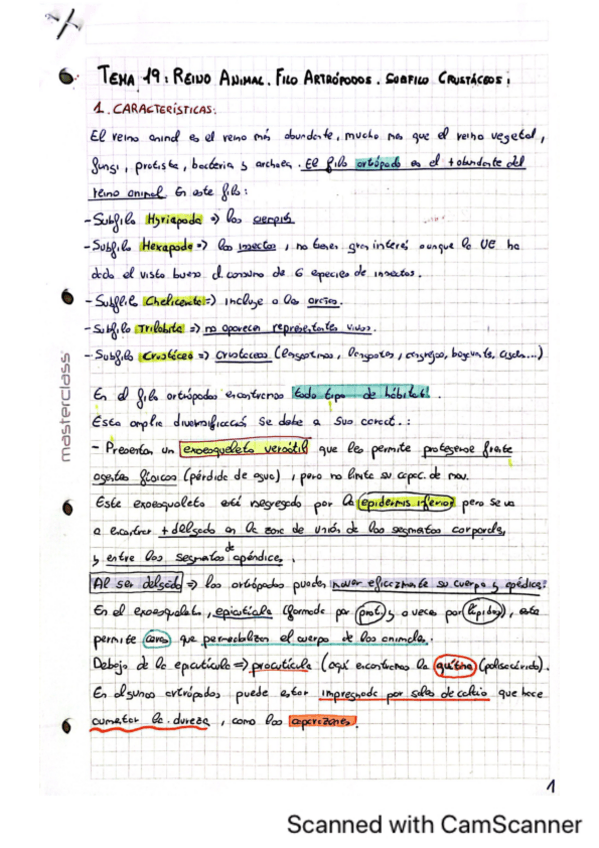 TEMA 19: REINO ANIMAL. FILO ARTRÓPODOS. SUBFILO CRUSTÁCEOS:
1. CARACTERÍSTICAS:
El reino animal es el reino más abundante, mucho mas que el reino vegetal,
fungi, protista, bacteria y archaea. El filo artrópodo es el + abundante del
reino animal. En este filo:
- Subfilo Myriapoda => los ciempiés
- Subfilo Hexapoda => los insectos, no tienen gran interés aunque la UE ha
dado el visto bueno al consumo de 6 especies de insectos.
- Subfilo Chelicerata => incluye a los
- Subfilo Trilobita => no aparecen representantes vivos.
- Subfilo Crustácea => Crustáceos (langostinos, langostas, cangrejos, bogavante, ...)
masterclass
En el filo artrópodos encontramos todo tipo de hábitat!.
Esta amplia diversificación se debe a sus caract.:
- Presentan un exoesqueleto versátil que les permite protegerse frente
agentes físicos (pérdida de agua), pero no limita su capac. de mov.
Este exoesqueleto está segregado por la epidermis inferior pero se va
a encontrar + delgado en la zona de unión de los segmentos corporales,
y entre los segmentos de apéndice.
Al ser delgado => los artrópodos pueden mover eficazmente su cuerpo y apéndice.
En el exoesqueleto, epicutícula (formada por prot. y a veces por lípidos), esta
permite ceras que permeabilizan el cuerpo de los animales.
Debajo de la epicutícula => procutícula (aquí encontramos la quitina (polisacárido).
En algunos artrópodos puede estar impregnada por sales de calcio que hace
aumentar la dureza, como los caparazones.
1
Scanned with CamScanner